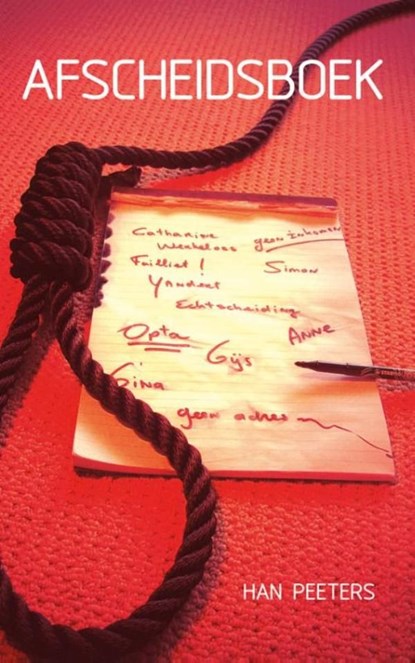 AFSCHEIDSBOEK
Catharine
Werkeloos geen inkomen
Failliet! Simon
Yandert
Echtscheiding
Opta Gijs ANNE
Gina
geen adres
HAN PEETERS